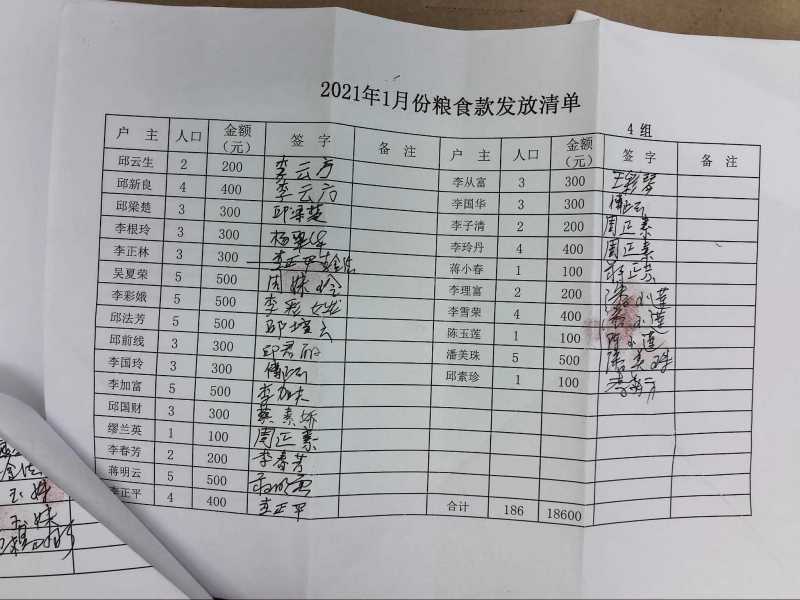 2021年1月份粮食款发放清单
4 组
户 主 人口 金额（元） 签 字 备 注 户 主 人口 金额（元） 签 字 备 注
邱云生 2 200 李从富 3 300
邱新良 4 400 李云方 李国华 3 300
邱梁楚 3 300 邱梁楚 李子清 2 200 周正素
李根玲 3 300 李玲丹 4 400 周正素
李正林 3 300 李正平 蒋小春 1 100
吴夏荣 5 500 周妹 李理富 2 200 小莲
李彩娥 5 500 李彩 李雪荣 4 400 小莲
邱法芳 5 500 陈玉莲 1 100 小莲
邱前线 3 300 潘美珠 5 500
李国玲 3 300 邱素珍 1 100
李加富 5 500
邱国财 3 300 蔡素娇
缪兰英 1 100 周正素
李春芳 2 200 李春芳
蒋明云 5 500
李正平 4 400 李正平 合计 186 18600
玉妹
玉妹